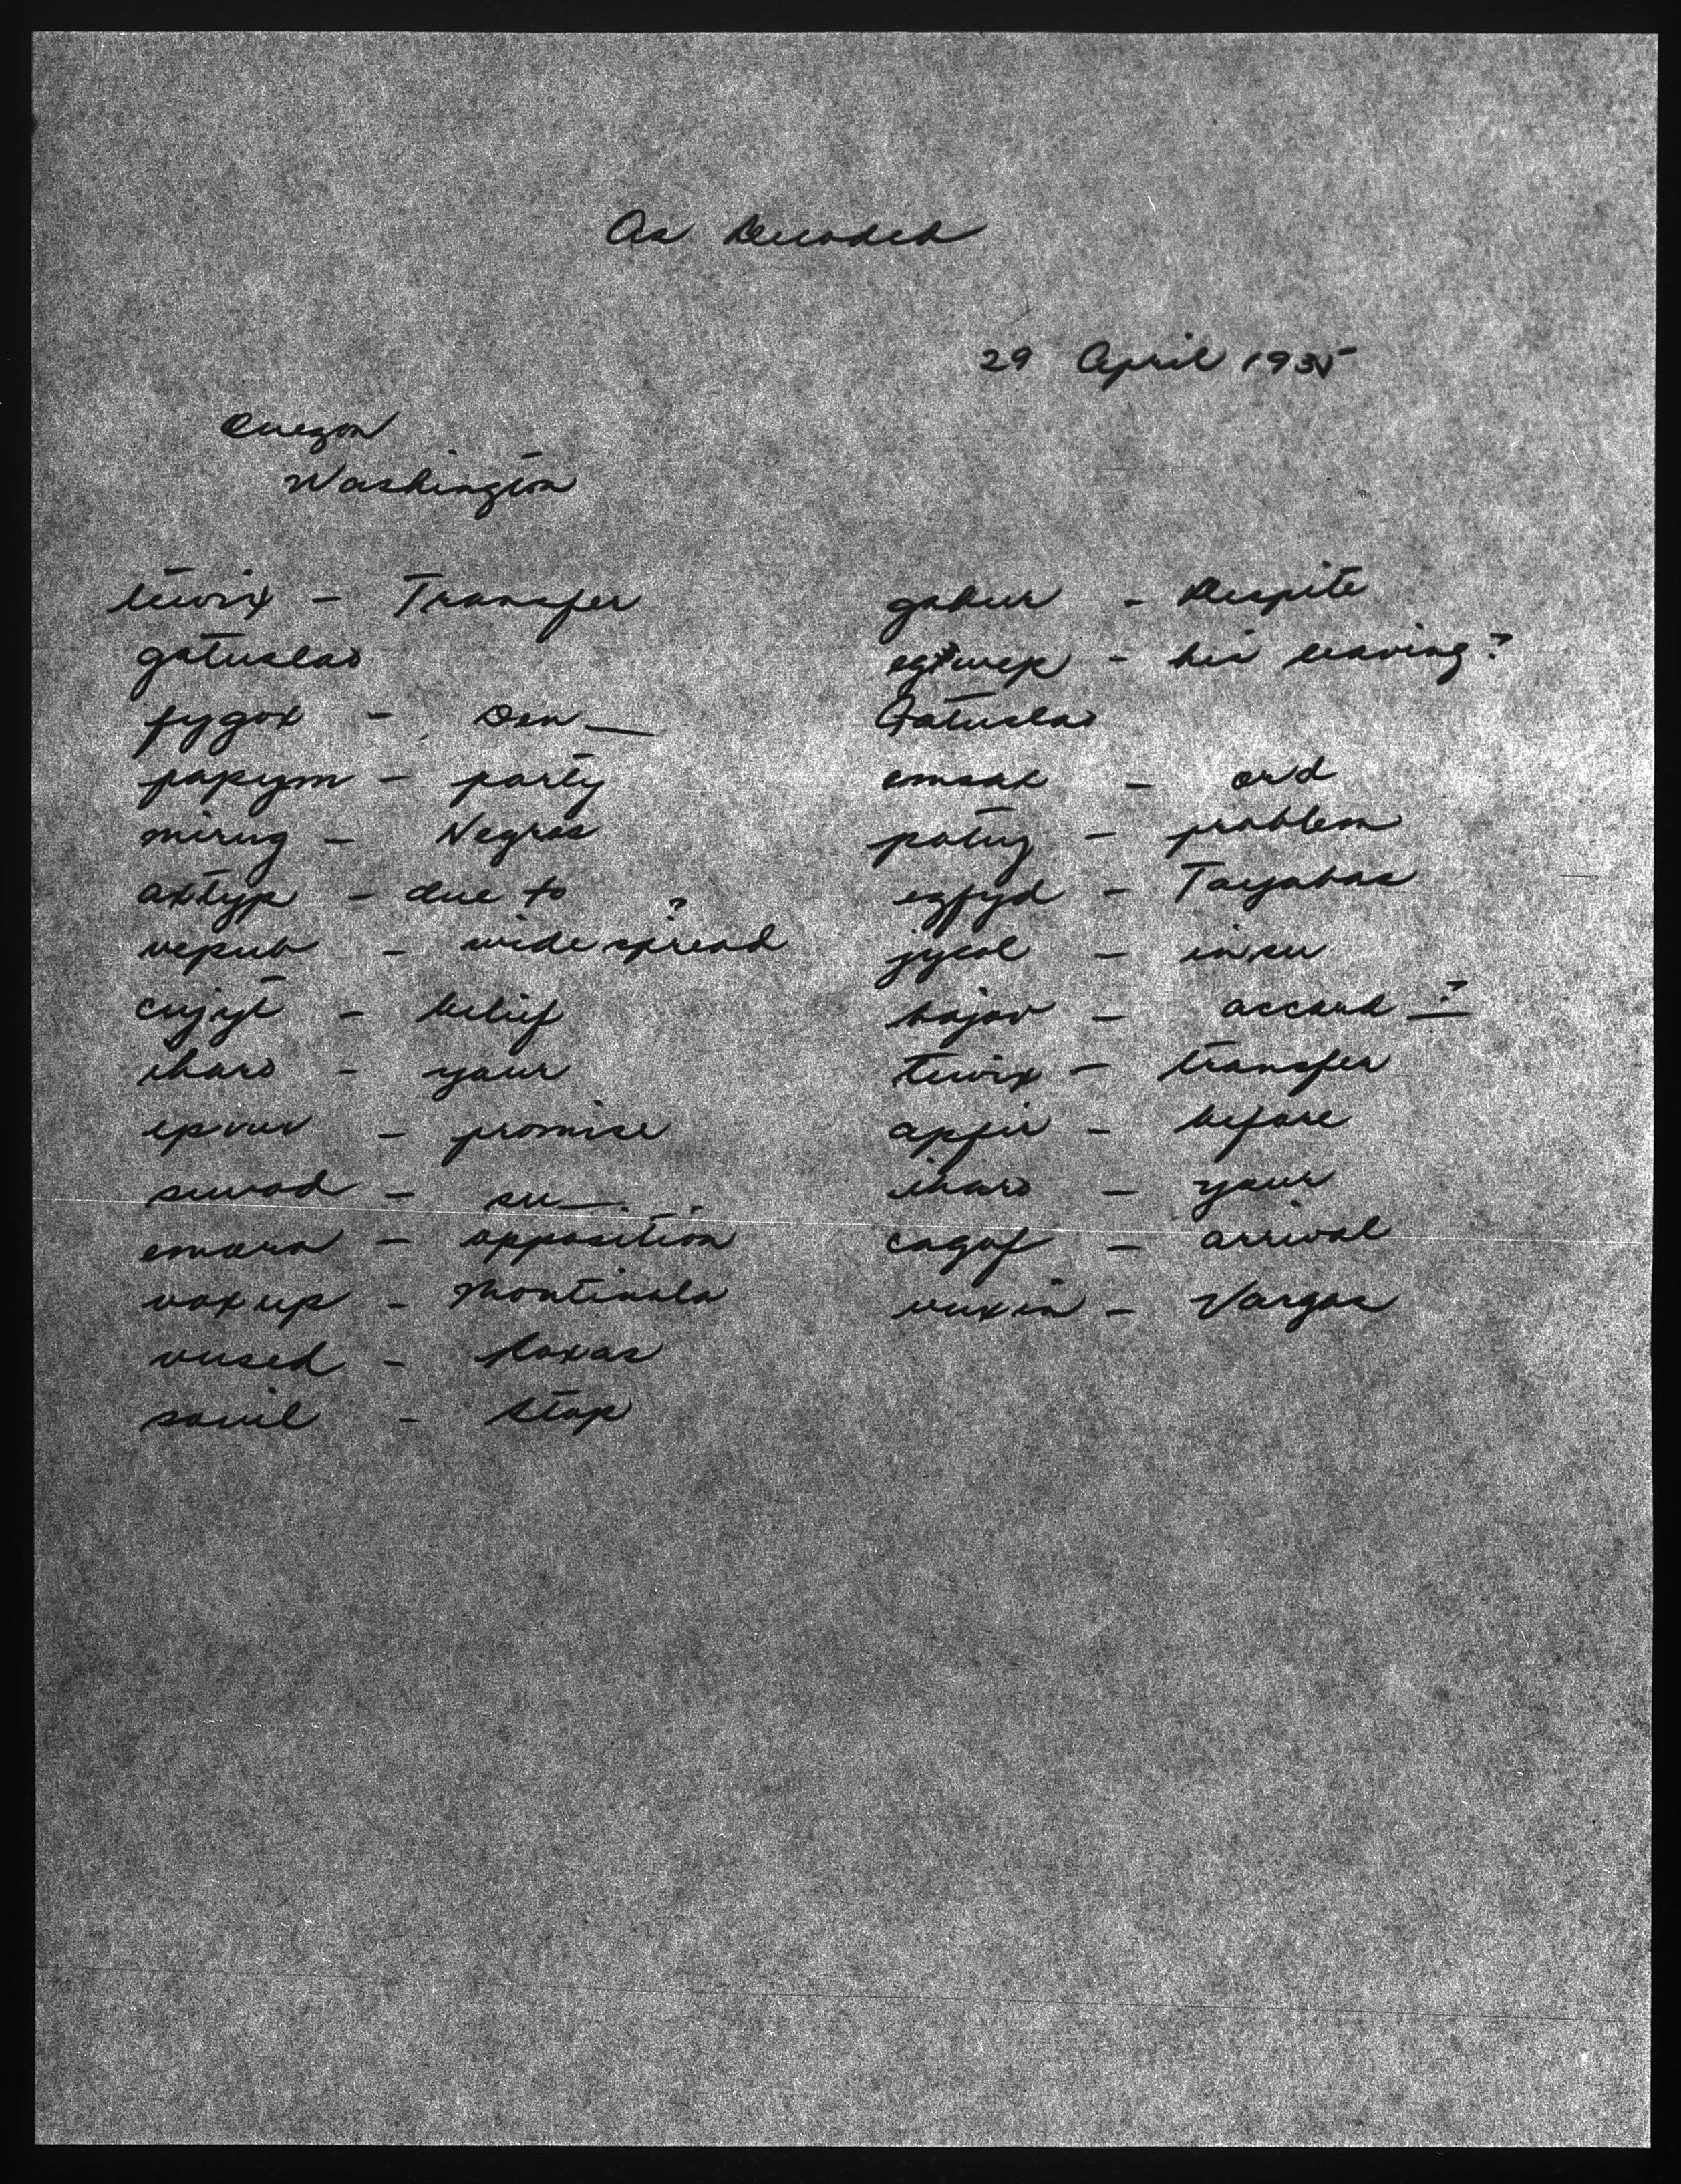 As Decoded
29 April 1935
Quezon
Washington
tewix - Transfer
gatuslao
fygox - Don __
papym - party
mirug - Negros
axtyp - due to
vepub - wide spread ?
cujyt - belief
iharo - your
epvuv - promise
suwod - su __
emurn - opposition
voxup - Montinola
vused - Roxas
sowil - stop
gabur - Despite
- his leaving ?
Gatuslao
- and
patug - problem
ezfyd - Tayabas
jycol - insu
bojov - accord __ ?
tewix - transfer
apfir - before
iharo - your
cagof - arrival
vuxin - Vargas